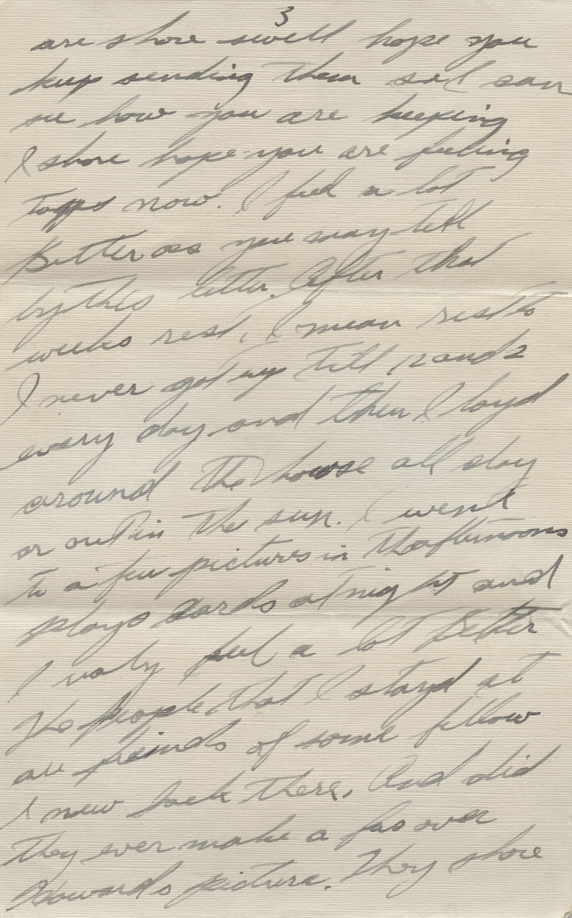 3
are shore swell hope you
keep sending them so I can
see how you are keeping
I shore hope you are feeling
topps now. I feel a lot
Better as you may tell
by this letter. After that
weeks rest, I mean rest to
I never got up till 12 and 2
every day and then I layd
around the house all day
or out in the sun. I went
to a few pictures in the afternoons
plays cards at night and
I realy feel a lot Better
The people that I stayd at
are freinds of some fellow
I new back there. And did
they ever make a fas over
Howards picture. They shore